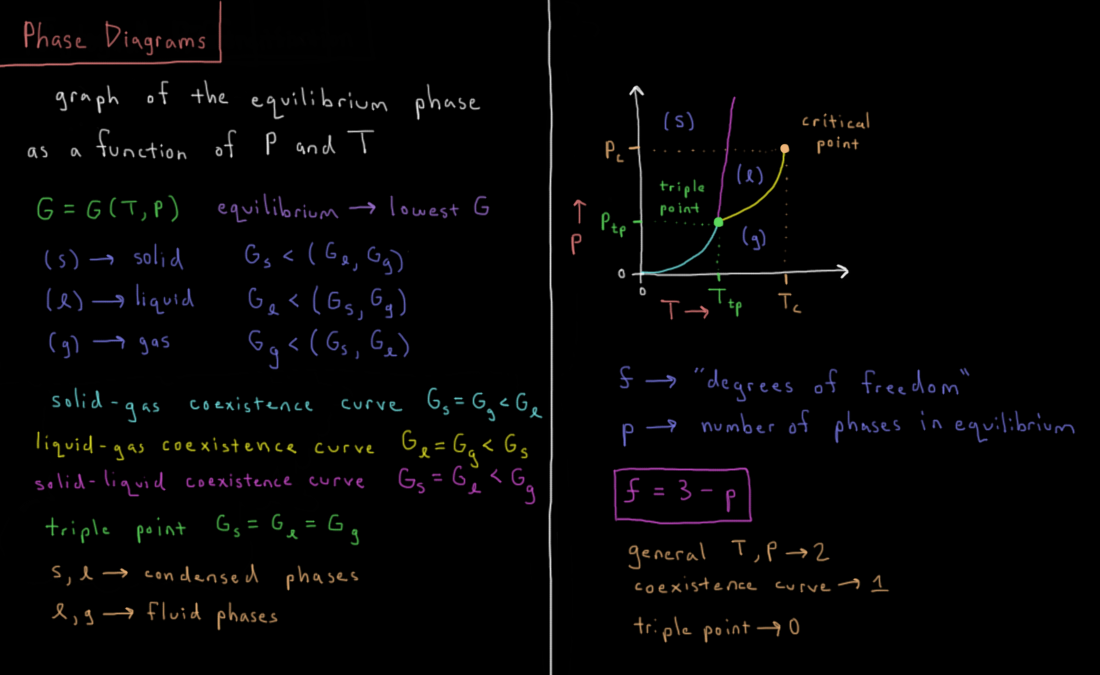 Phase Diagrams
graph of the equilibrium phase
as a function of P and T
G = G(T, P) equilibrium → lowest G
(s) → solid G_s < (G_ℓ, G_g)
(ℓ) → liquid G_ℓ < (G_s, G_g)
(g) → gas G_g < (G_s, G_ℓ)
solid-gas coexistence curve G_s = G_g < G_ℓ
liquid-gas coexistence curve G_ℓ = G_g < G_s
solid-liquid coexistence curve G_s = G_ℓ < G_g
triple point G_s = G_ℓ = G_g
s, ℓ → condensed phases
ℓ, g → fluid phases
(s)
critical
point
P_c
(ℓ)
triple
point
P_tp
(g)
↑
P
0
0
T →
T_tp
T_c
f → "degrees of freedom"
p → number of phases in equilibrium
f = 3 - p
general T, P → 2
coexistence curve → 1
triple point → 0